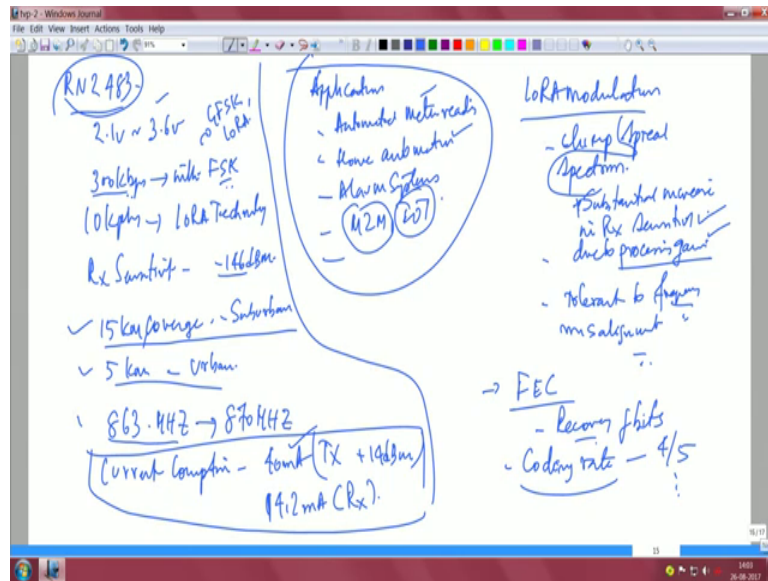 tvp-2 - Windows Journal
File Edit View Insert Actions Tools Help
91%
RN2483
2.1V ~ 3.6V
GFSK,
LoRA
300kbps → with FSK
10kphs → LoRA Technology
Rx Sensitivit - -146dBm.
15 km Coverge. - Suburban
5 km - Urban.
863.MHZ → 870MHZ
Current Comptin - 40mA (TX +14dBm)
14.2mA (Rx).
Application
Automated meter readin
Home automation
- Alarm Systems
- M2M IOT
LoRA modulation
- chirp Spread
Spectrum.
Substantial increase
in Rx Sensitivit
due to processing gain
- tolerant to frequency
misalignment
→ FEC
- Recovery of bits
- Coding rate - 4/5
15/17
15
14:03
26-08-2017